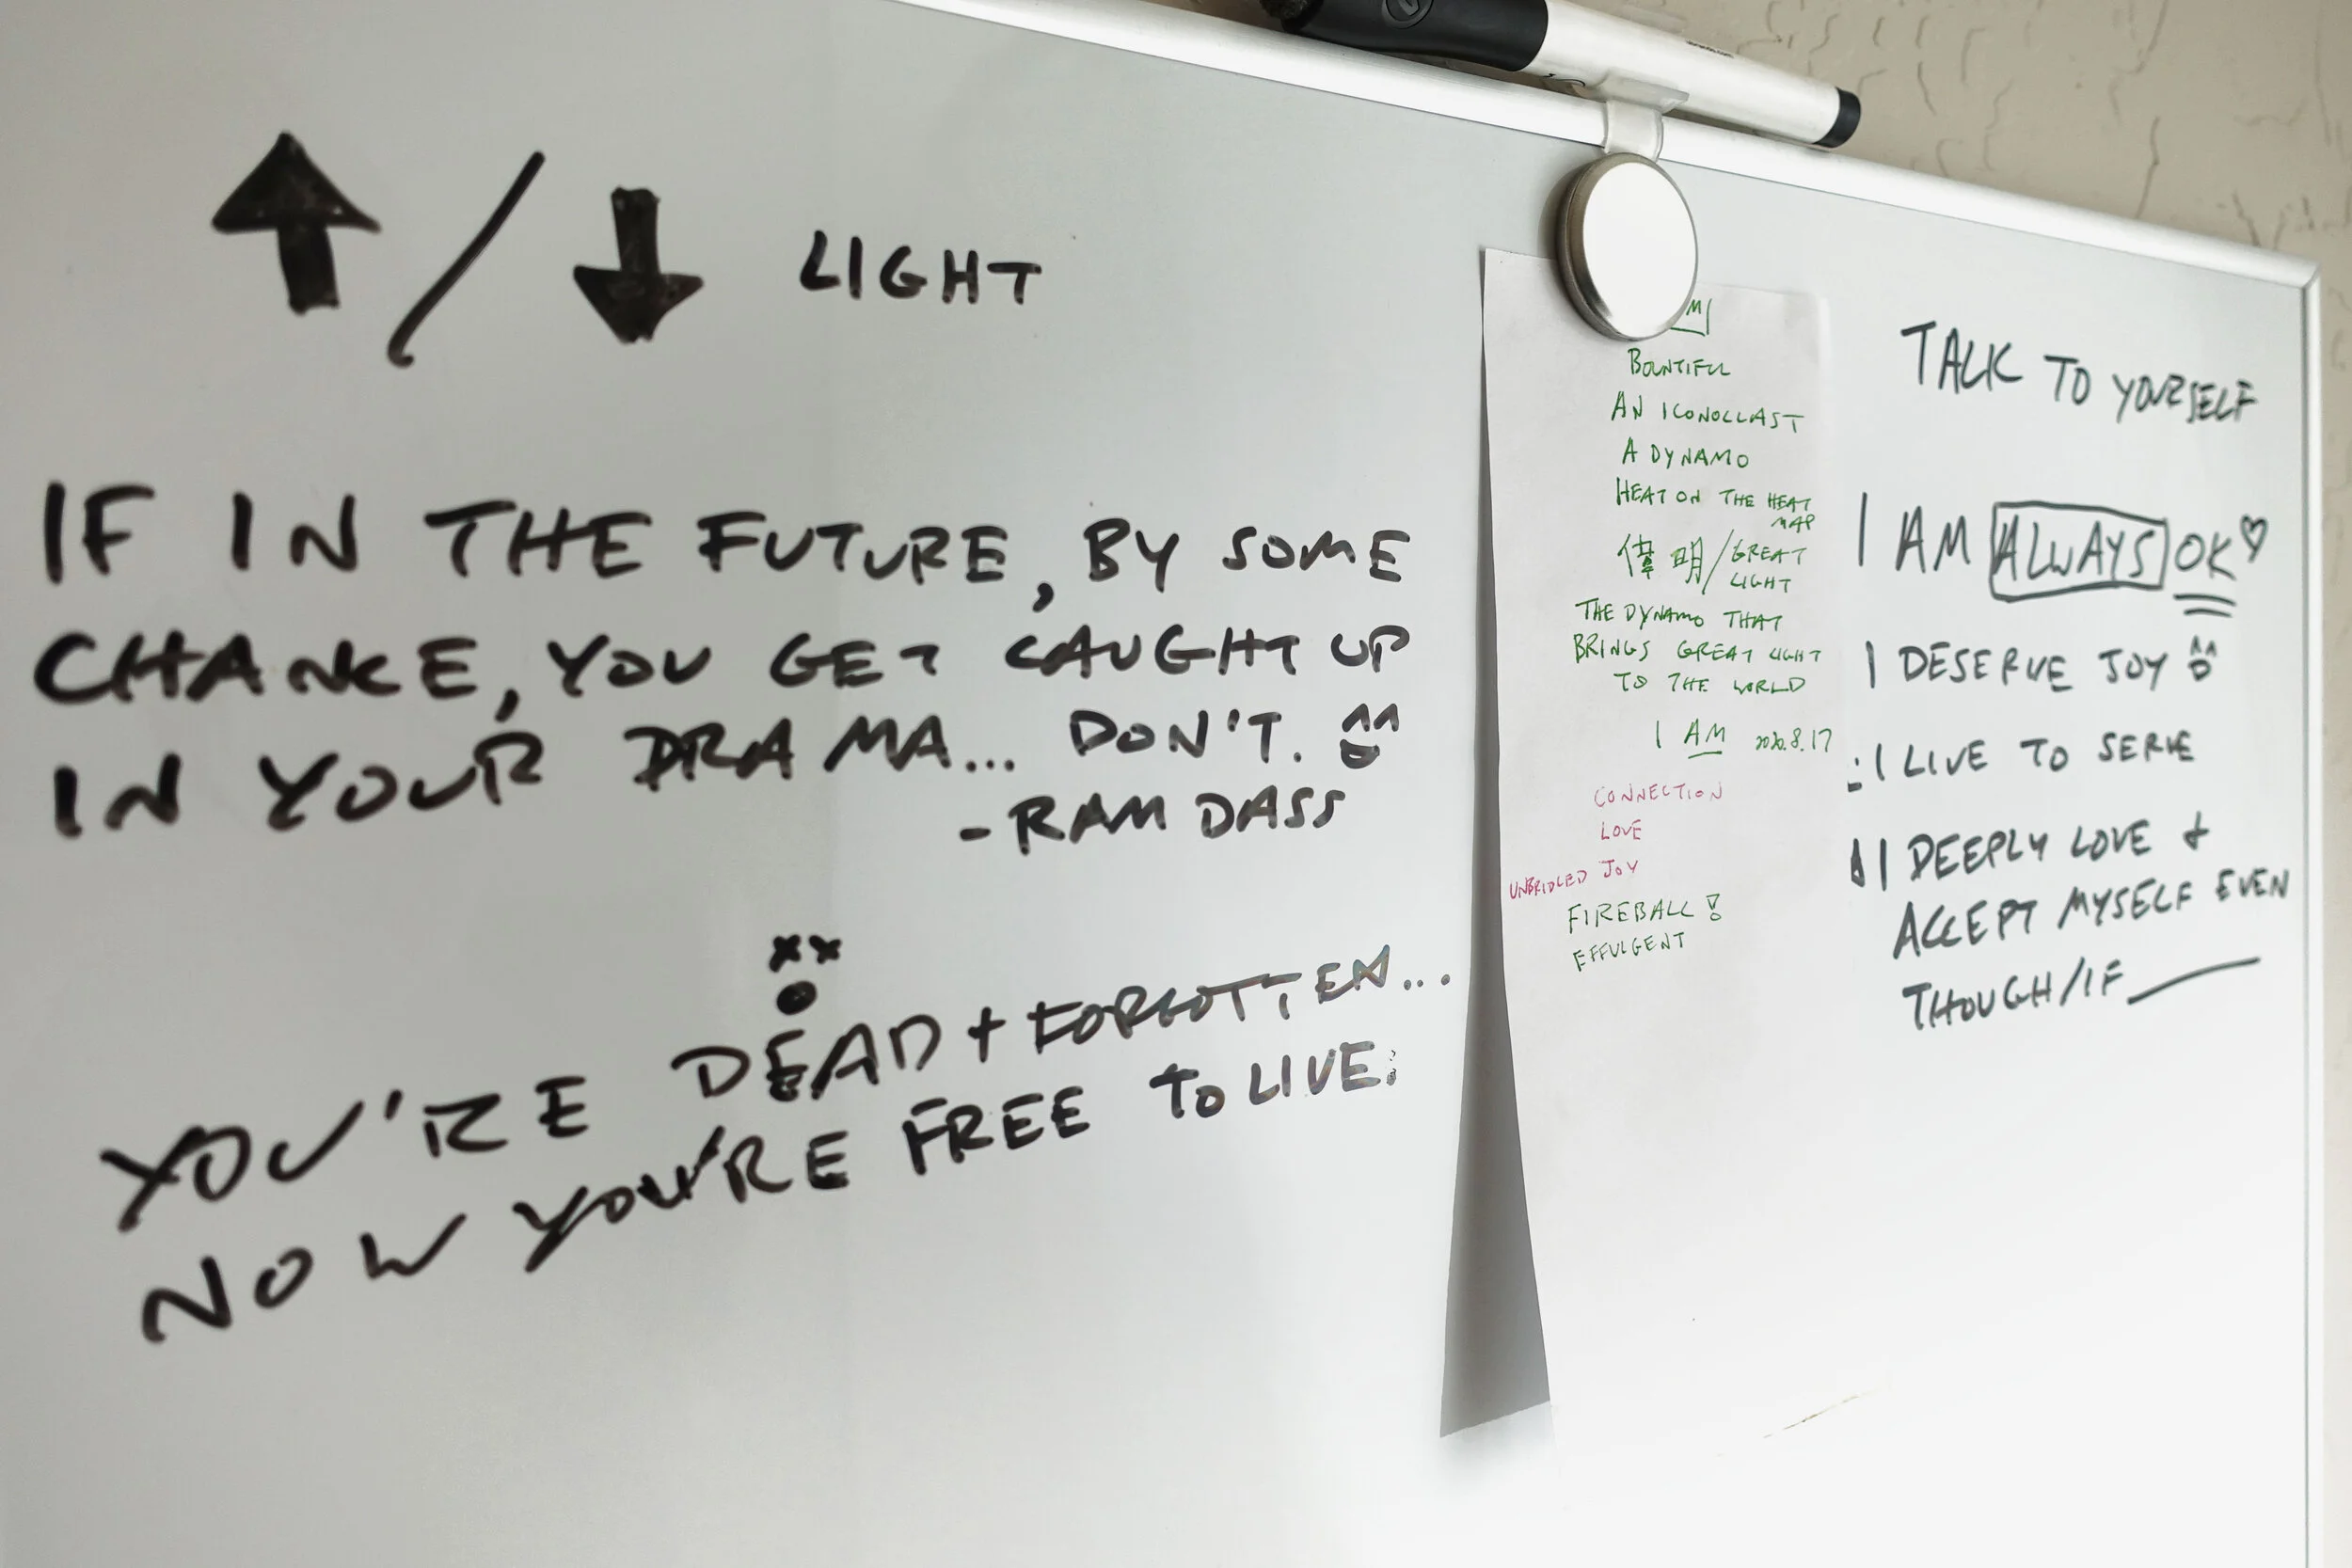 ↑/↓ LIGHT
IF IN THE FUTURE, BY SOME
CHANCE, YOU GET CAUGHT UP
IN YOUR DRAMA... DON'T.
- RAM DASS
YOU'RE DEAD + FORGOTTEN...
NOW YOU'RE FREE TO LIVE.
BOUNTIFUL
AN ICONOCLAST
A DYNAMO
HEAT ON THE HEAT
MAP
偉明/GREAT
LIGHT
THE DYNAMO THAT
BRINGS GREAT LIGHT
TO THE WORLD
I AM 2020.8.17
CONNECTION
LOVE
UNBRIDLED JOY
FIREBALL!
EFFULGENT
TALK TO YOURSELF
I AM ALWAYS OK♡
I DESERVE JOY
I LIVE TO SERVE
I DEEPLY LOVE +
ACCEPT MYSELF EVEN
THOUGH/IF ____